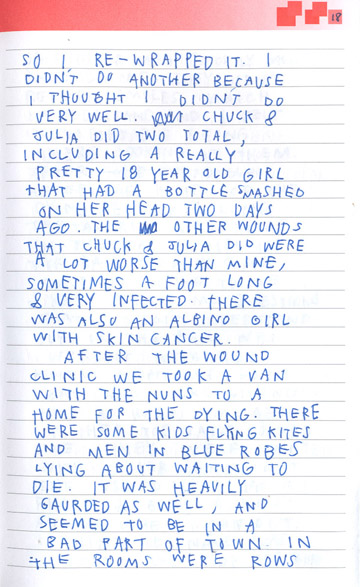 18
SO I RE-WRAPPED IT. I
DIDN'T DO ANOTHER BECAUSE
I THOUGHT I DIDN'T DO
VERY WELL. CHUCK &
JULIA DID TWO TOTAL,
INCLUDING A REALLY
PRETTY 18 YEAR OLD GIRL
THAT HAD A BOTTLE SMASHED
ON HER HEAD TWO DAYS
AGO. THE OTHER WOUNDS
THAT CHUCK & JULIA DID WERE
A LOT WORSE THAN MINE,
SOMETIMES A FOOT LONG
& VERY INFECTED. THERE
WAS ALSO AN ALBINO GIRL
WITH SKIN CANCER.
AFTER THE WOUND
CLINIC WE TOOK A VAN
WITH THE NUNS TO A
HOME FOR THE DYING. THERE
WERE SOME KIDS FLYING KITES
AND MEN IN BLUE ROBES
LYING ABOUT WAITING TO
DIE. IT WAS HEAVILY
GAURDED AS WELL, AND
SEEMED TO BE IN A
BAD PART OF TOWN. IN
THE ROOMS WERE ROWS